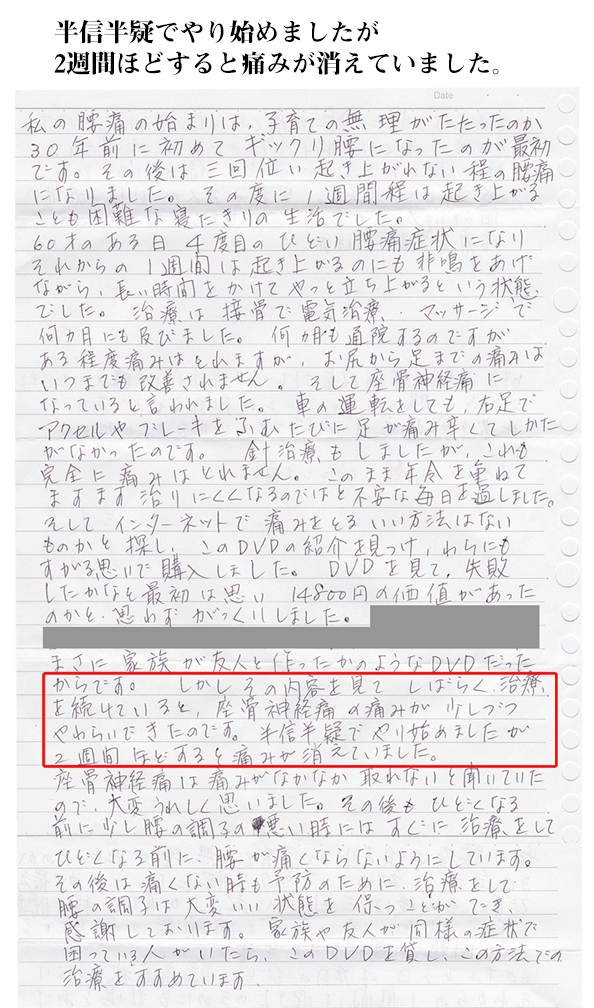 半信半疑でやり始めましたが
2週間ほどすると痛みが消えていました。
Date
私の腰痛の始まりは、子育ての無理がたたったのか
30年前に初めてギックリ腰になったのが最初
です。その後は三回位い起き上がれない程の腰痛
になりました。その度に1週間程は起き上がる
ことも困難な寝たきりの生活でした。
60才のある日4度目のひどい腰痛症状になり
それからの1週間は起き上がるのにも悲鳴をあげ
ながら、長い時間をかけてやっと立ち上がるという状態
でした。治療は接骨で電気治療・マッサージで
何カ月にも及びました。何カ月も通院するのですが
ある程度痛みはとれますが、お尻から足までの痛みは
いつまでも改善されません。そして座骨神経痛に
なっていると言われました。車の運転をしても、右足で
アクセルやブレーキをふむたびに足が痛み辛くてしかた
がなかったのです。針治療もしましたが、これも
完全に痛みはとれません。このまま年令を重ねて
ますます治りにくくなるのではと不安な毎日を過しました。
そしてインターネットで痛みをとるいい方法はない
ものかと探し、このDVDの紹介を見つけ、わらにも
すがる思いで購入しました。DVDを見て、失敗
したかなと最初は思い14800円の価値があった
のかと、思わずがっくりしました。
まさに家族が友人と作ったかのようなDVDだった
からです。しかしその内容を見てしばらく、治療
を続けていると、座骨神経痛の痛みが少しづつ
やわらいできたのです。半信半疑でやり始めましたが
2週間ほどすると痛みが消えていました。
座骨神経痛は痛みがなかなか取れないと聞いていた
ので、大変うれしく思いました。その後もひどくなる
前に少し腰の調子の悪い時にはすぐに治療をして
ひどくなる前に、腰が痛くならないようにしています。
その後は痛くない時も予防のために、治療をして
腰の調子は大変いい状態を保つことができ、
感謝しております。家族や友人が同様の症状で
困っている人がいたら、このDVDを貸し、この方法での
治療をすすめています。